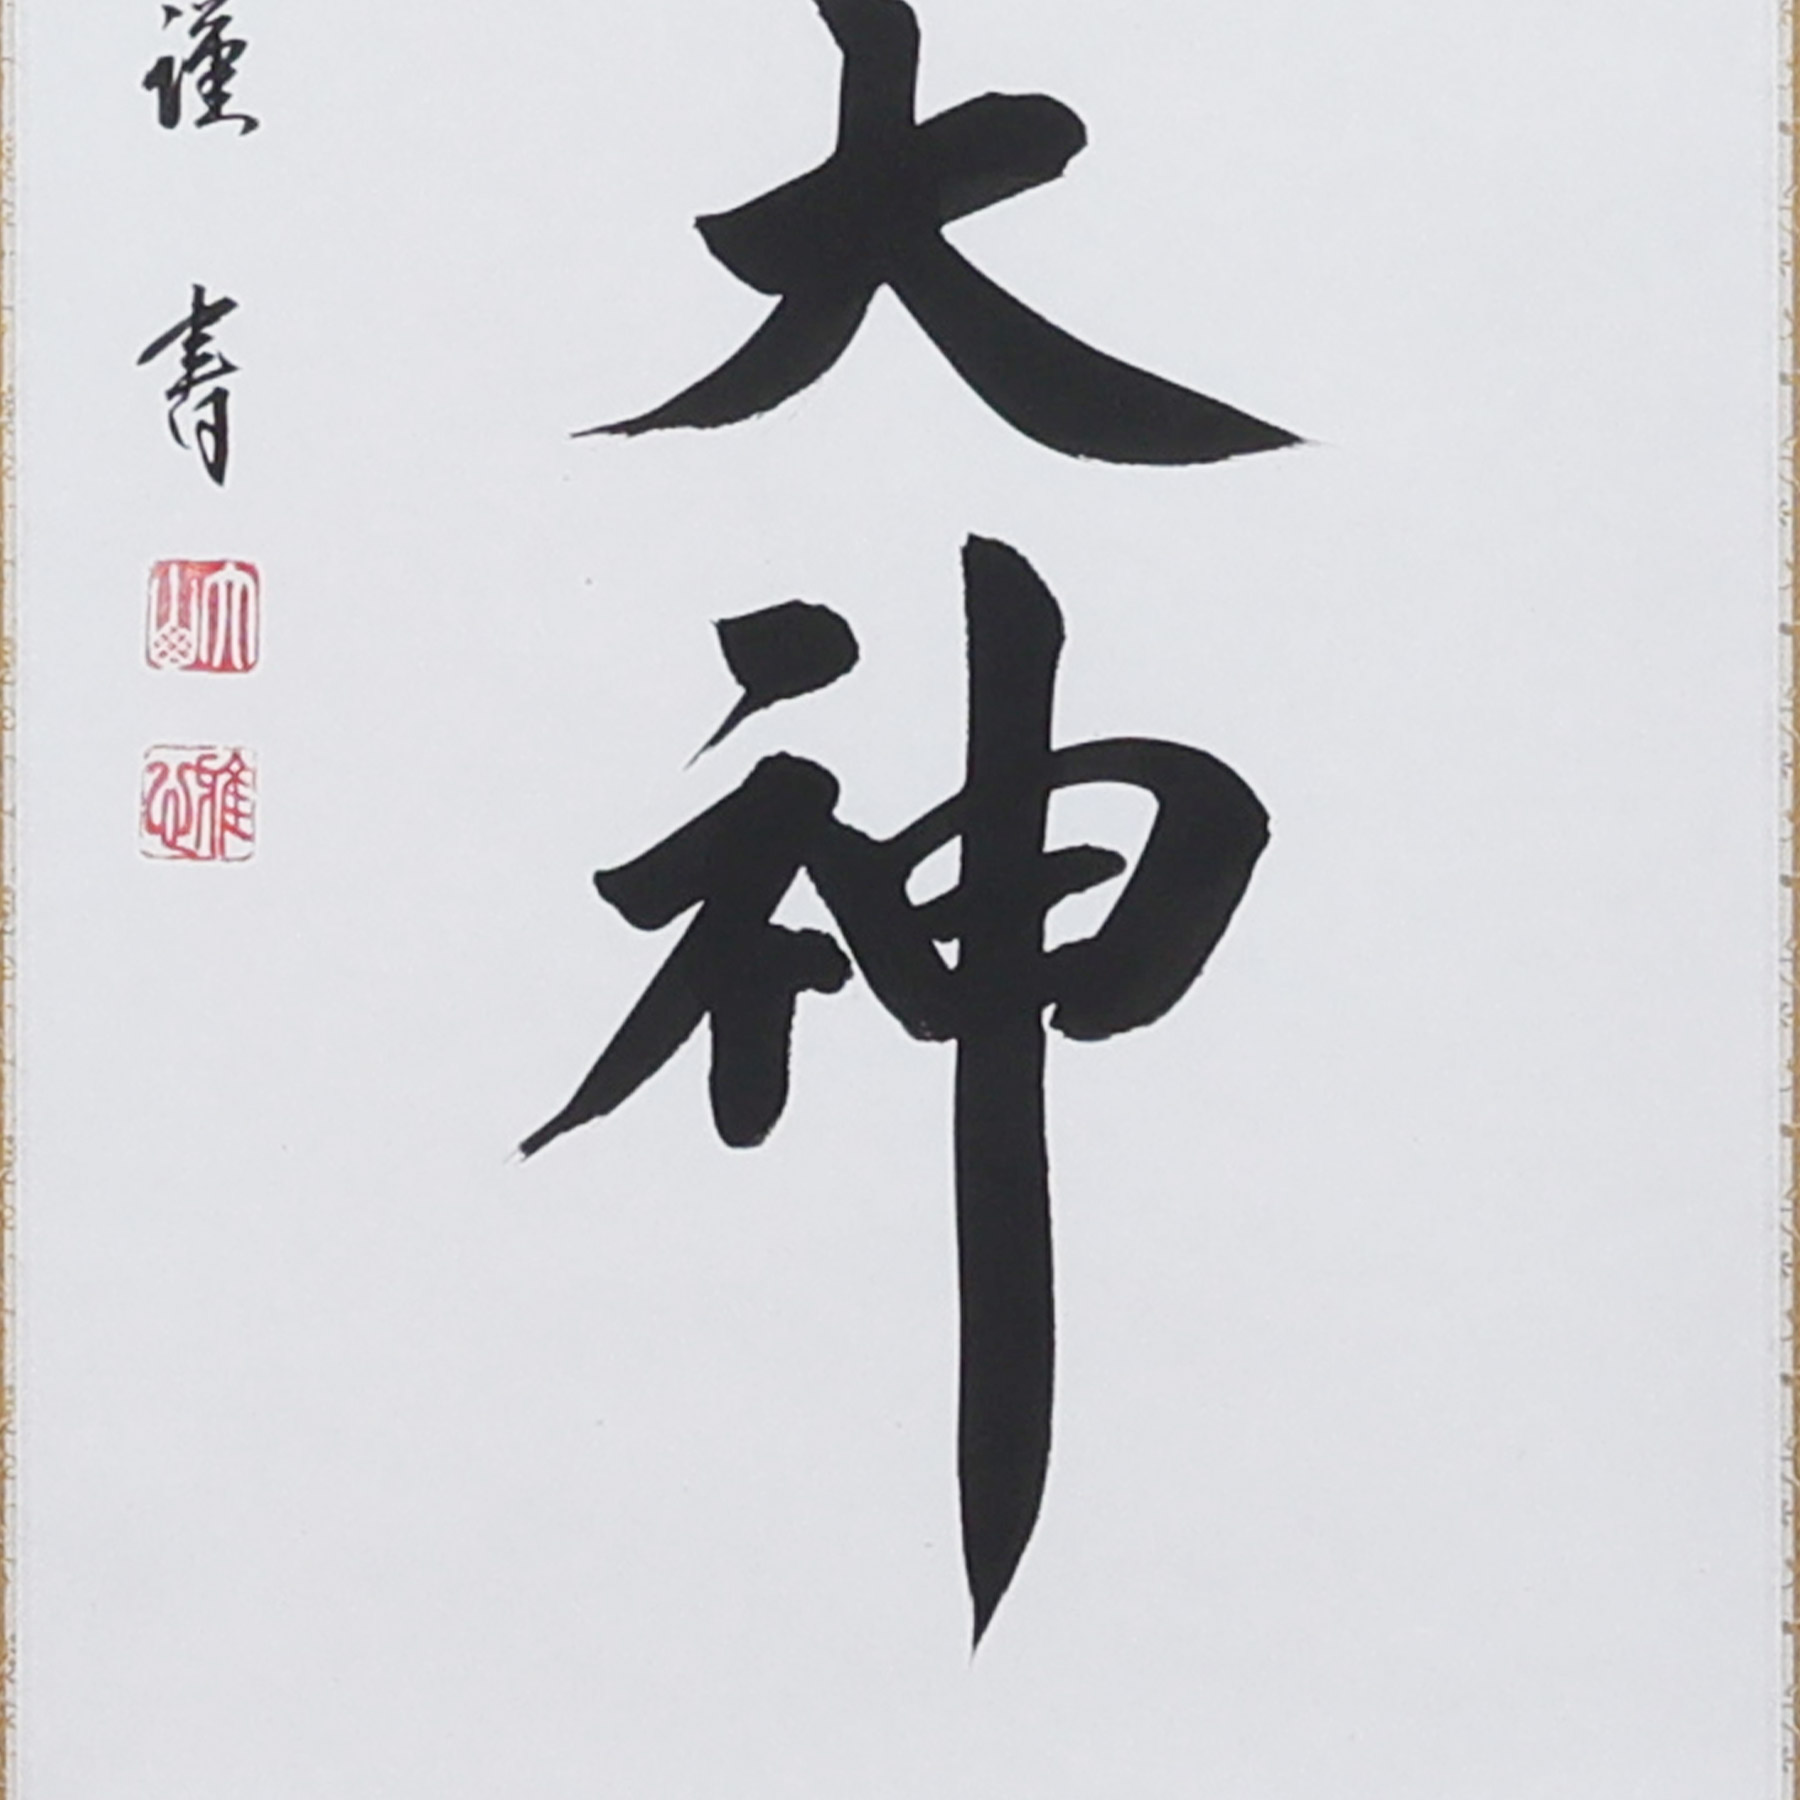 大神
謹書